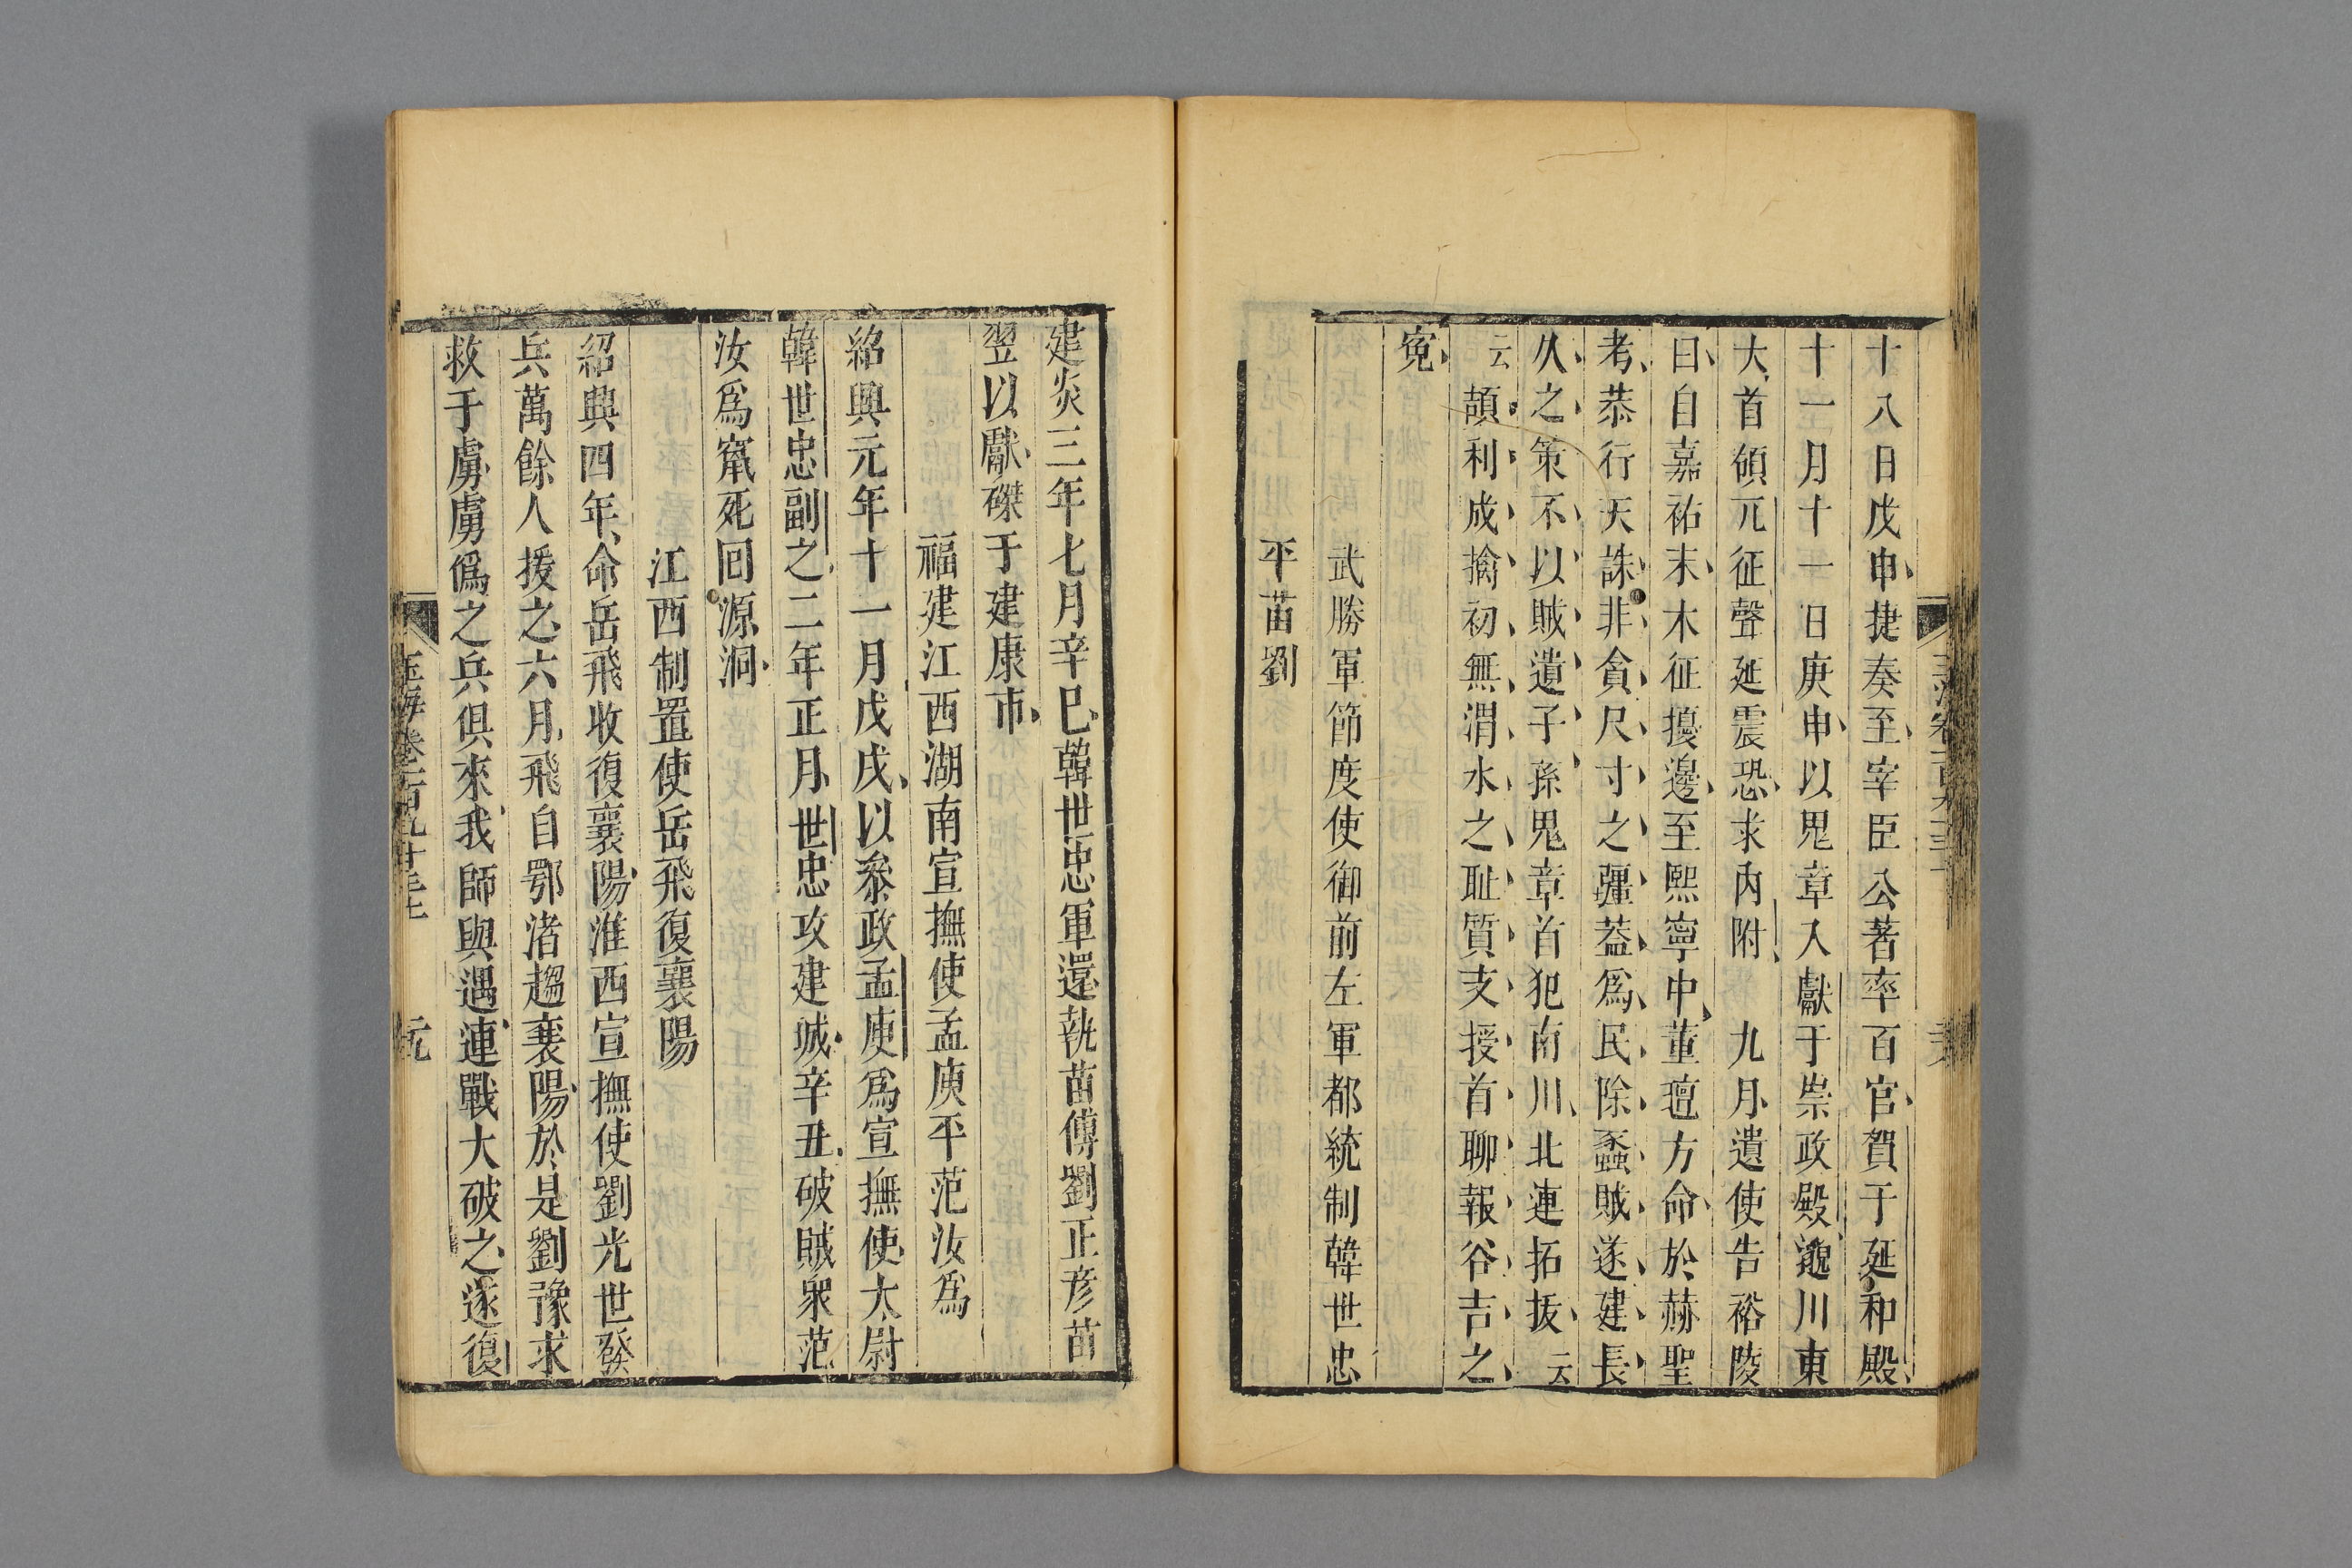 十八日戊申捷奏至宰臣公著率百官賀于延和殿
十一月十一日庚申以鬼章入獻于崇政殿邈川東
大首領兀征聲延震恐求內附　九月遺使告裕陵
曰自嘉祐末木征擾邊至熙寧中董氊方命於赫聖
考恭行天誅非貪尺寸之疆蓋爲民除蠡賊遂建長
久之策不以賊遺子孫鬼章首犯南川北連拓拔云
云頡利成擒初無渭水之耻質支授首聊報谷吉之
寃
武勝軍節度使御前左軍都統制韓世忠
平苗劉
建炎三年七月辛巳韓世忠軍還執苗傅劉正彥苗
翌以獻磔于建康市
福建江西湖南宣撫使孟庾平范汝爲
紹興元年十一月戊戌以叅政孟庾爲宣撫使太尉
韓世忠副之二年正月世忠攻建城辛丑破賊衆范
汝爲竄死回源洞
江西制置使岳飛復襄陽
紹興四年命岳飛收復襄陽淮西宣撫使劉光世發
兵萬餘人援之六月飛自鄂渚趨襄陽於是劉豫求
救于虜虜僞之兵俱來我師與遇連戰大破之遂復
玉海卷一百九十三上